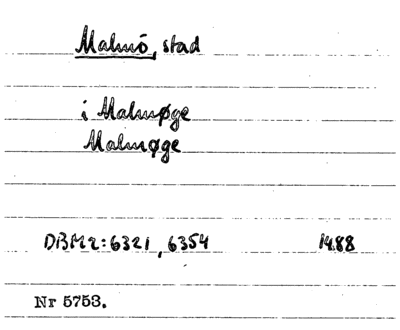 Malmö, stad
i Malmøge
Malmøge
DBM2:6321, 6354 1488
Nr 5753.